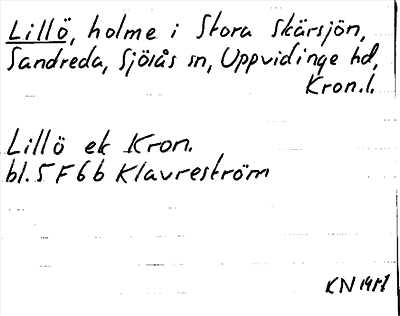 Lillö, holme i Stora Skärsjön,
Sandreda, Sjösås sn, Uppvidinge hd,
Kron.l.
Lillö ek Kron.
bl. 5 F 6 b Klavreström
KN